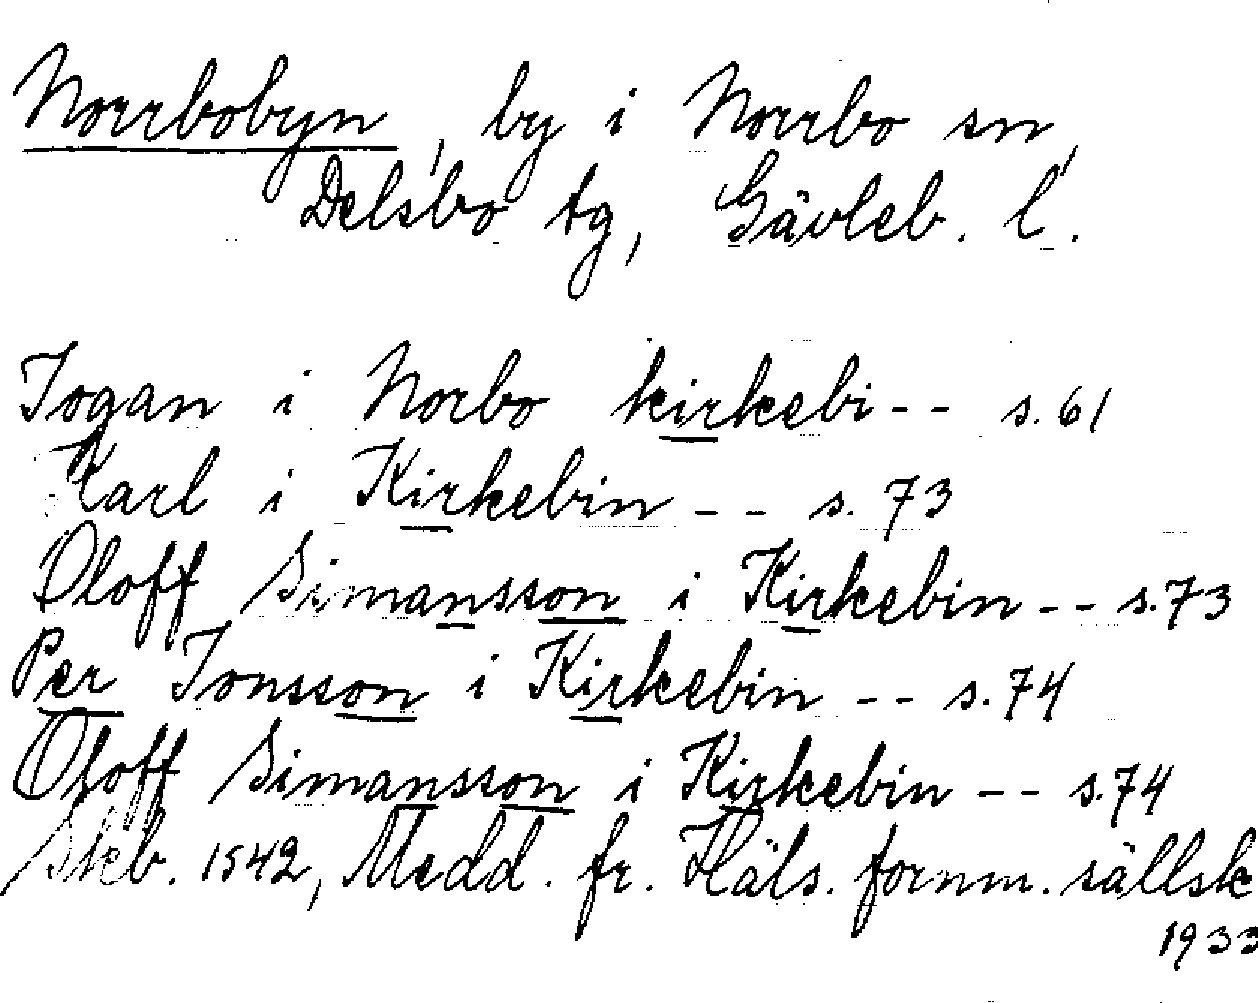 Norrbobyn, by i Norrbo sn,
Delsbo tg, Gävleb. l.
Jogan i Norbo kirkebi-- s. 61
Karl i Kirkebin -- s. 73
Oloff Simansson i Kirkebin -- s. 73
Per Jonsson i Kirkebin -- s. 74
Oloff Simansson i Kirkebin -- s. 74
Skb. 1542, Medd. fr. Häls. fornm. sällsk
1933